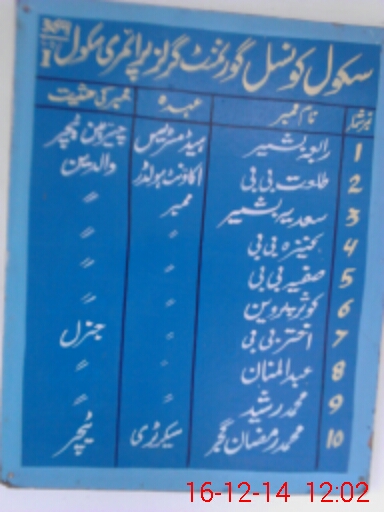 سکول کونسل گورنمنٹ گرلز پرائمری سکول
نمبر شمار نام ممبر عہدہ ممبر کی حیثیت
1 رابعہ بشیر ہیڈمسٹریس چیئرپرسن ٹیچر
2 طلعت بی بی اکاونٹ ہولڈر والدین
3 سعدیہ بشیر ممبر "
4 کنیزہ بی بی " "
5 صفیہ بی بی " "
6 کوثر پروین " "
7 اختر بی بی " جنرل
8 عبدالمنان " "
9 محمد رشید " "
10 محمد رمضان گجر سیکرٹری ٹیچر
16-12-14 12:02